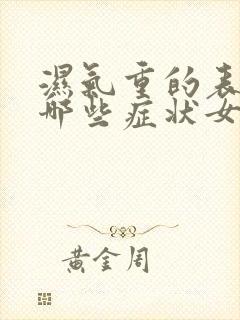 濕氣重的表
哪些症狀女
黃金周